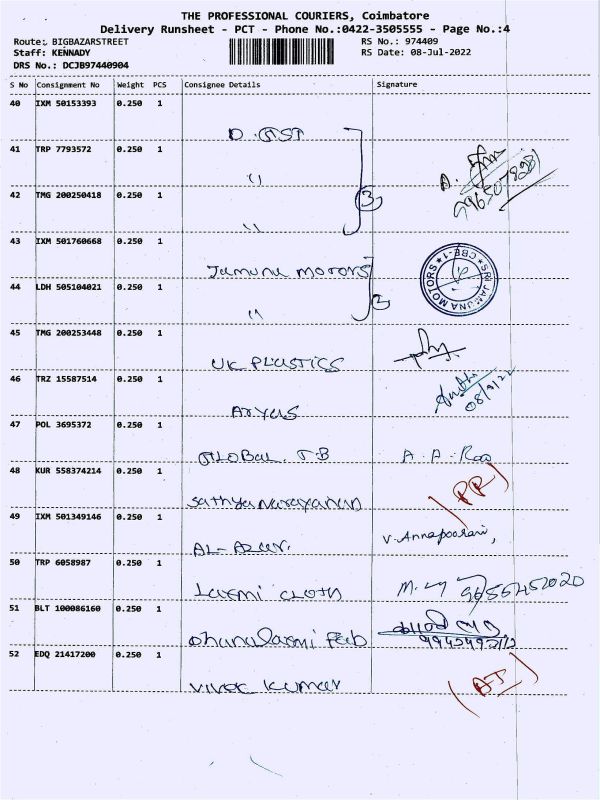 THE PROFESSIONAL COURIERS, Coimbatore
Delivery Runsheet - PCT - Phone No.:0422-3505555 - Page No.:4
Route: BIGBAZARSTREET RS No.: 974409
Staff: KENNADY RS Date: 08-Jul-2022
DRS No.: DCJB97440904
S No Consignment No Weight PCS Consignee Details Signature
40 IXM 50153393 0.250 1
D. GST
41 TRP 7793572 0.250 1
"
42 TMG 200250418 0.250 1
3
"
43 IXM 501760668 0.250 1
Jamuna motors
SRI JAMUNA MOTORS CBE-1
44 LDH 505104021 0.250 1
" 2
45 TMG 200253448 0.250 1
UK PLASTICS
46 TRZ 15587514 0.250 1
08/9/22
Aryas
47 POL 3695372 0.250 1
GLOBAL. TB A. A. Rao
48 KUR 558374214 0.250 1
Sathyanarayanan (PR)
49 IXM 501349146 0.250 1
AL-Azar. V. Annapoorani,
50 TRP 6058987 0.250 1
Laxmi cloth 9655452020
51 BLT 100086160 0.250 1
Dhanalaxmi Fab
52 EDQ 21417200 0.250 1
vivek kumar